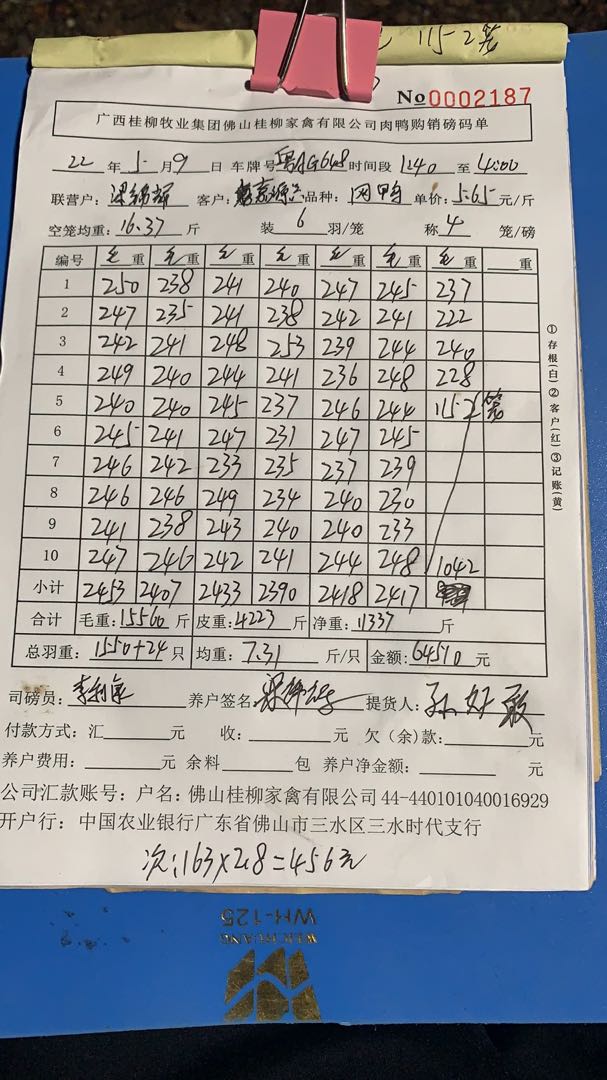 115-2笼
No 0002187
广西桂柳牧业集团佛山桂柳家禽有限公司肉鸭购销磅码单
22 年 5 月 9 日 车牌号 粤AG648 时间段 1240 至 4:00
联营户: 客户: 品种: 鸭 单价: 5.65 元/斤
空笼均重: 16.37 斤 装 6 羽/笼 称 4 笼/磅
编号 毛重 毛重 毛重 毛重 毛重 毛重 毛重 重
1 250 238 241 240 247 245 237
2 247 235 241 238 242 241 222
3 242 241 248 253 239 244 240
4 249 240 244 241 236 248 228
5 240 240 245 237 246 244 115-2笼
6 245 241 247 231 247 245
7 246 242 233 235 237 239
8 246 246 249 234 240 230
9 241 238 243 240 240 233
10 247 246 242 241 244 248 1042
小计 2453 2407 2433 2390 2418 2417
合计 毛重: 15560 斤 皮重: 4223 斤 净重: 11337 斤
总羽重: 1550+24 只 均重: 7.31 斤/只 金额: 64510 元
司磅员: 养户签名: 提货人: 孙好敢
付款方式: 汇 元 收: 元 欠(余)款: 元
养户费用: 元 余料 包 养户净金额: 元
公司汇款账号: 户名: 佛山桂柳家禽有限公司 44-440101040016929
开户行: 中国农业银行广东省佛山市三水区三水时代支行
次:163×2.8=456元
①存根(白)②客户(红)③记账(黄)
WH-125
WEN HUANG